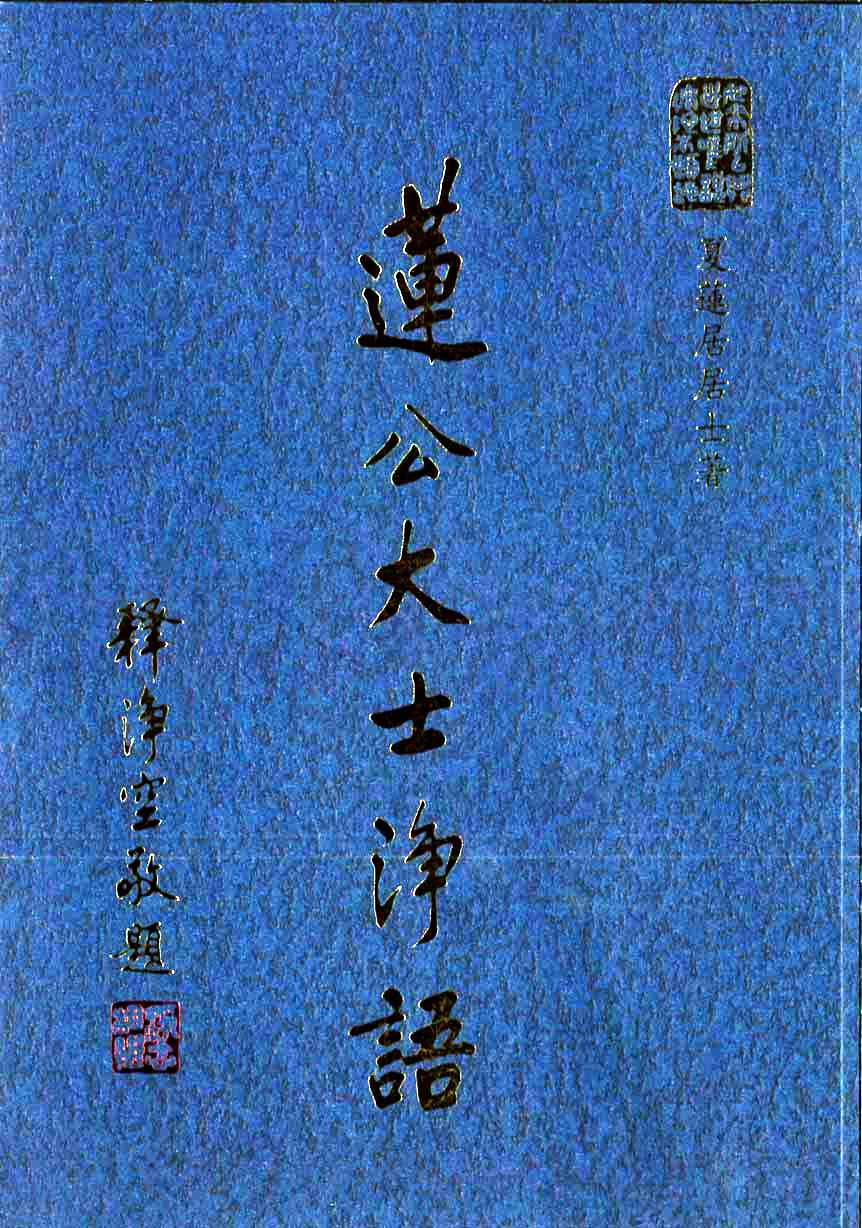 夏蓮居居士著
蓮公大士淨語
釋淨空敬題